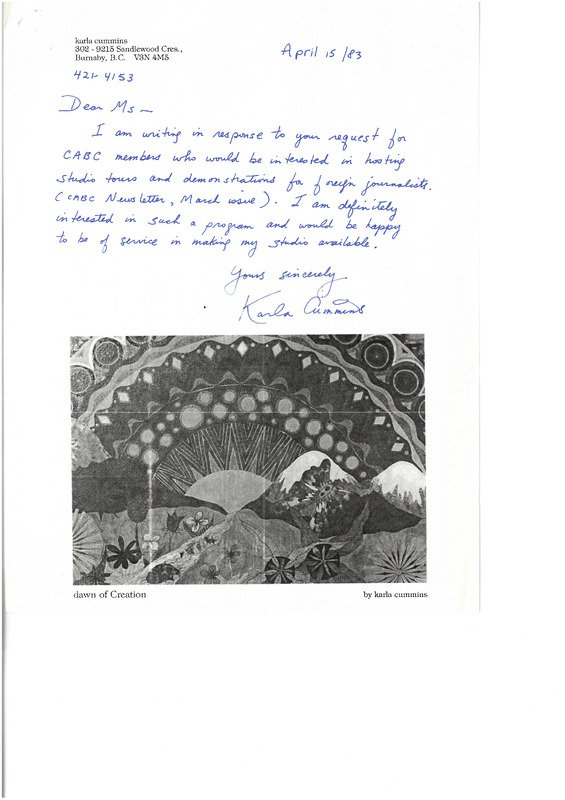 karla cummins
302 - 9215 Sandlewood Cres.,
Burnaby, B.C. V3N 4M5
421-4153
April 15/83
Dear Ms —
I am writing in response to your request for
CABC members who would be interested in hosting
studio tours and demonstrations for foreign journalists.
(CABC Newsletter, March issue). I am definitely
interested in such a program and would be happy
to be of service in making my studio available.
Yours sincerely
Karla Cummins
dawn of Creation
by karla cummins